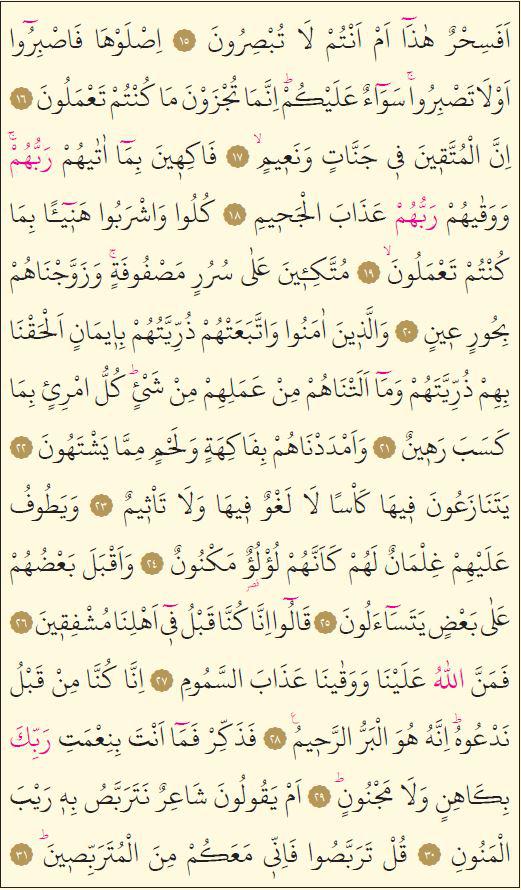 اَفَسِحْرٌ هٰذَٓا اَمْ اَنْتُمْ لَا تُبْصِرُونَ ﴿١٥﴾ اِصْلَوْهَا فَاصْبِرُٓوا
اَوْ لَا تَصْبِرُواۚ سَوَٓاءٌ عَلَيْكُمْۜ اِنَّمَا تُجْزَوْنَ مَا كُنْتُمْ تَعْمَلُونَ ﴿١٦﴾
اِنَّ الْمُتَّقٖينَ فٖي جَنَّاتٍ وَنَعٖيمٍۙ ﴿١٧﴾ فَاكِهٖينَ بِمَٓا اٰتٰيهُمْ رَبُّهُمْۚ
وَوَقٰيهُمْ رَبُّهُمْ عَذَابَ الْجَحٖيمِ ﴿١٨﴾ كُلُوا وَاشْرَبُوا هَنٖٓيـًٔا بِمَا
كُنْتُمْ تَعْمَلُونَۙ ﴿١٩﴾ مُتَّكِـٖٔينَ عَلٰى سُرُرٍ مَصْفُوفَةٍۚ وَزَوَّجْنَاهُمْ
بِحُورٍ عٖينٍ ﴿٢٠﴾ وَالَّذٖينَ اٰمَنُوا وَاتَّبَعَتْهُمْ ذُرِّيَّتُهُمْ بِاٖيمَانٍ اَلْحَقْنَا
بِهِمْ ذُرِّيَّتَهُمْ وَمَٓا اَلَتْنَاهُمْ مِنْ عَمَلِهِمْ مِنْ شَيْءٍۜ كُلُّ امْرِئٍ بِمَا
كَسَبَ رَهٖينٌ ﴿٢١﴾ وَاَمْدَدْنَاهُمْ بِفَاكِهَةٍ وَلَحْمٍ مِمَّا يَشْتَهُونَ ﴿٢٢﴾
يَتَنَازَعُونَ فٖيهَا كَأْسًا لَا لَغْوٌ فٖيهَا وَلَا تَأْثٖيمٌ ﴿٢٣﴾ وَيَطُوفُ
عَلَيْهِمْ غِلْمَانٌ لَهُمْ كَاَنَّهُمْ لُؤْلُؤٌ مَكْنُونٌ ﴿٢٤﴾ وَاَقْبَلَ بَعْضُهُمْ
عَلٰى بَعْضٍ يَتَسَٓاءَلُونَ ﴿٢٥﴾ قَالُٓوا اِنَّا كُنَّا قَبْلُ فٖٓي اَهْلِنَا مُشْفِقٖينَ ﴿٢٦﴾
فَمَنَّ اللّٰهُ عَلَيْنَا وَوَقٰينَا عَذَابَ السَّمُومِ ﴿٢٧﴾ اِنَّا كُنَّا مِنْ قَبْلُ
نَدْعُوهُۜ اِنَّهُ هُوَ الْبَرُّ الرَّحٖيمُࣖ ﴿٢٨﴾ فَذَكِّرْ فَمَٓا اَنْتَ بِنِعْمَتِ رَبِّكَ
بِكَاهِنٍ وَلَا مَجْنُونٍۜ ﴿٢٩﴾ اَمْ يَقُولُونَ شَاعِرٌ نَتَرَبَّصُ بِهٖ رَيْبَ
الْمَنُونِ ﴿٣٠﴾ قُلْ تَرَبَّصُوا فَاِنّٖي مَعَكُمْ مِنَ الْمُتَرَبِّصٖينَۜ ﴿٣١﴾